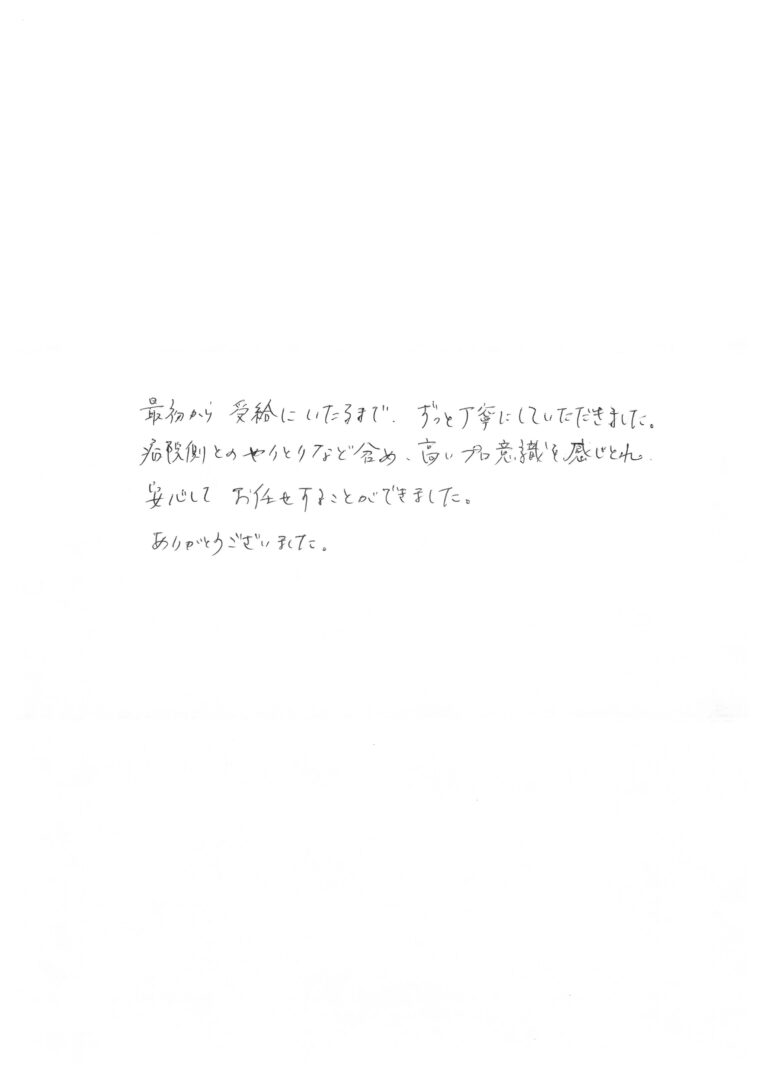 最初から 受給にいたるまで、ずっと丁寧にしていただきました。
病院側とのやりとりなど含め、高いプロ意識を感じとれ、
安心して お任せすることができました。
ありがとうございました。